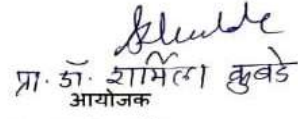 प्रा. डॉ. शर्मिला कुबडे
आयोजक